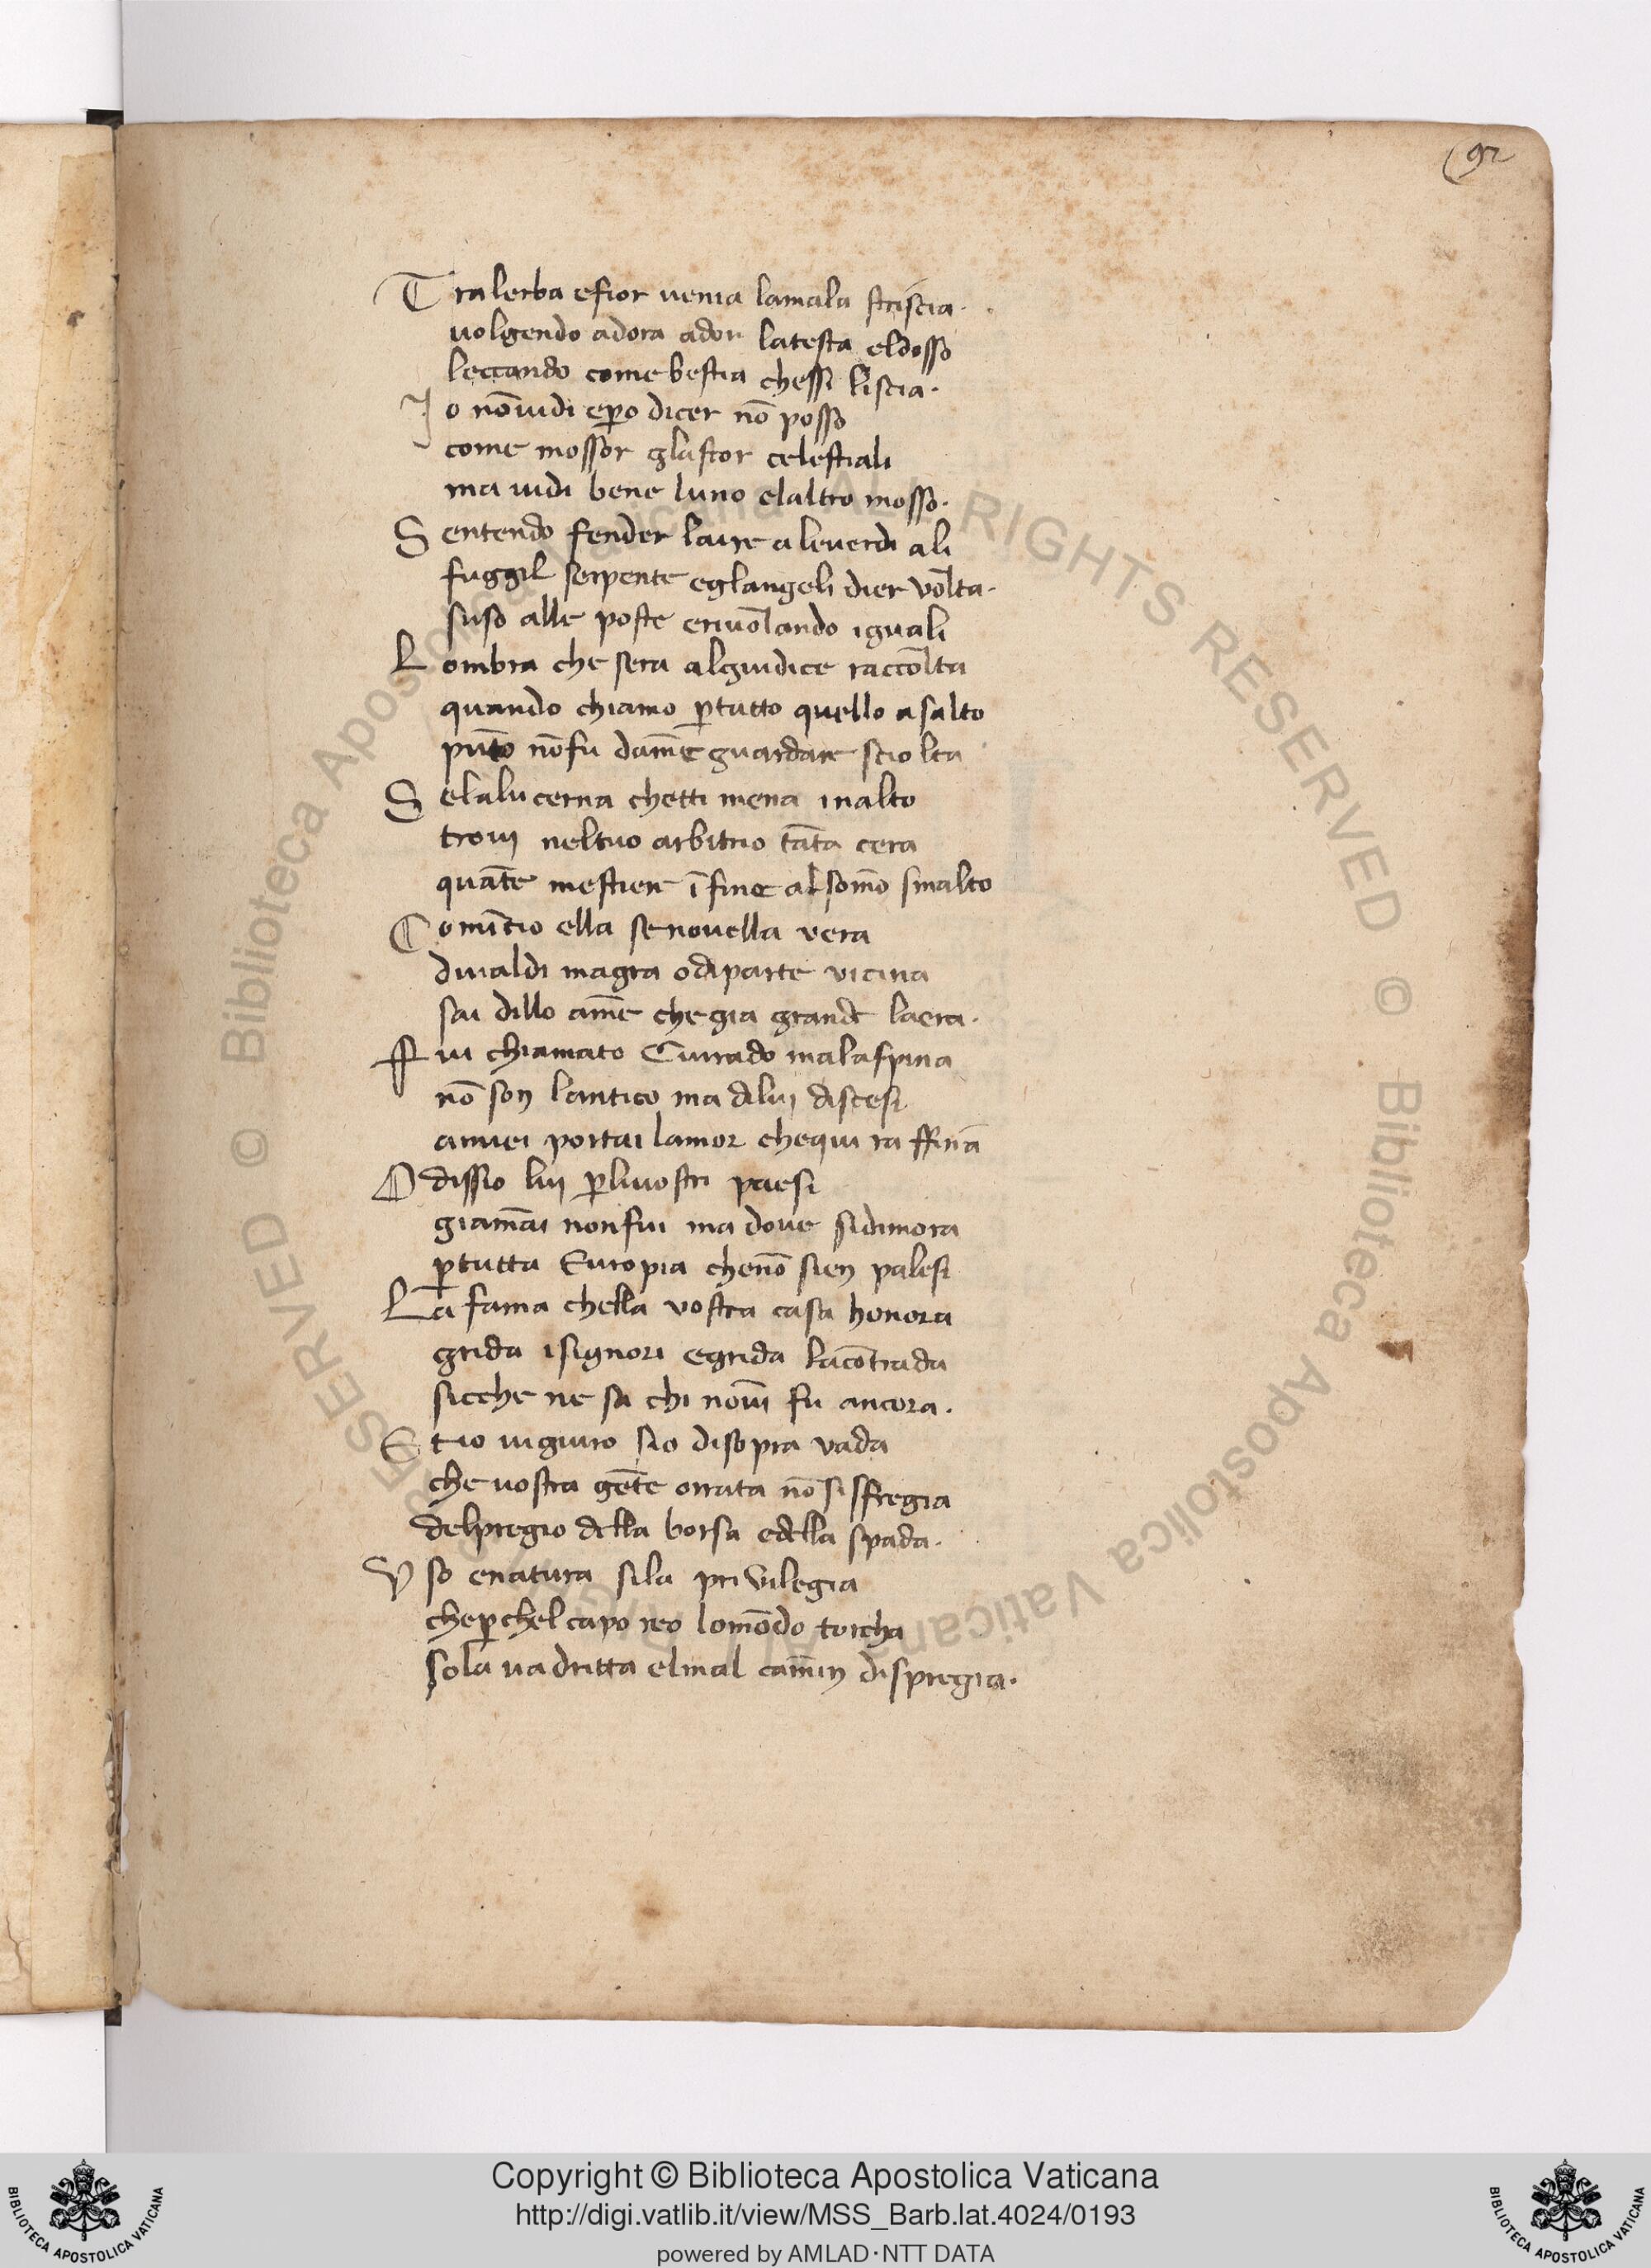 92
Tralerba efior uenia lamala striscia.
uolgendo adora ador latesta eldosso
leccando come bestia chessi liscia.
Io nōuidi eꝑo dicer nō posso
come mossor glastor celestiali
ma uidi bene luno elaltro mosso.
Sentendo fender laire aleuerdi ali
fuggil serpente eglangeli dier volta.
suso alle poste eriuolando iguali
Lombra che sera algiudice raccolta
quando chiamo ꝑtutto quello asalto
pūto nōfu damē guardare sciolta
Selalucerna chetti mena inalto
troui neltuo arbitrio tāta cera
quātē mestiere īfine alsomō smalto
Comīcio ella senouella vera
diualdi magra odiparte vicina
sai dillo amē chegia grande laera.
Fui chiamato Currado malaspina
nō son lantico ma dilui discesi
amiei portai lamor chequi raffina
O dissio lui ꝑliuostri paesi
giamai nonfui ma doue sidimora
ꝑtutta Europia chenō sien palesi
La fama chella vostra casa honora
grida isignori egrida lacōtrada
sicche ne sa chi nōui fu ancora.
Et io uigiuro sio disopra vada
che uostra gēte orrata nō si sfregia
delpregio della borsa edella spada.
Uso enatura sila priuilegia
cheꝑchel capo reo lomōdo torcha
sola ua dritta elmal camin dispregia.
© Biblioteca Apostolica Vaticana ALL RIGHTS RESERVED © Biblioteca Apostolica Vaticana ALL RIGHTS RESERVED
Copyright © Biblioteca Apostolica Vaticana
http://digi.vatlib.it/view/MSS_Barb.lat.4024/0193
powered by AMLAD·NTT DATA
BIBLIOTECA APOSTOLICA VATICANA
BIBLIOTECA APOSTOLICA VATICANA